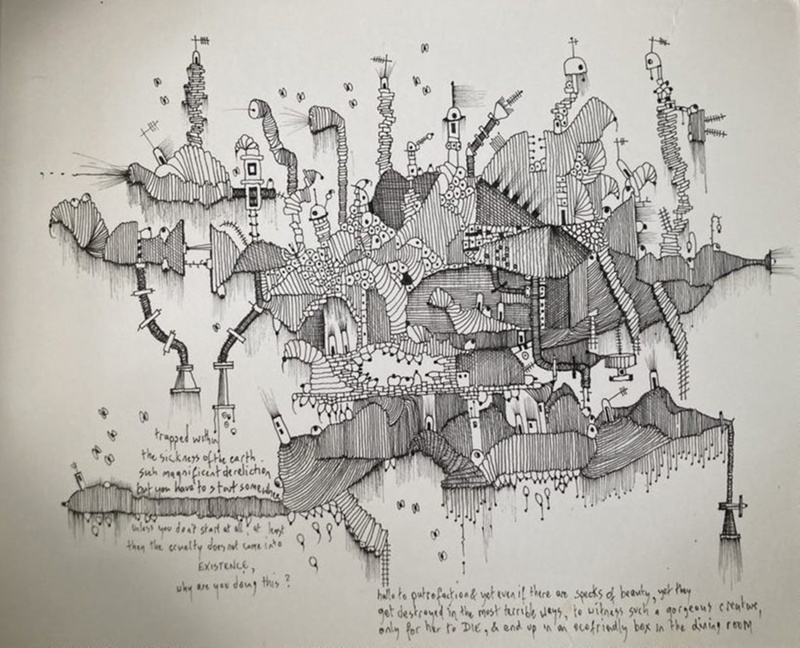 trapped within
the sickness of the earth.
such magnificent dereliction
but you have to start somewhere
unless you don't start at all, at least
then the cruelty does not come into
EXISTENCE,
why are you doing this?
hello to putrefaction & yet even if there are specks of beauty, yet they
get destroyed in the most terrible ways, to witness such a gorgeous creature,
only for her to DIE, & end up in an ecofriendly box in the dining room